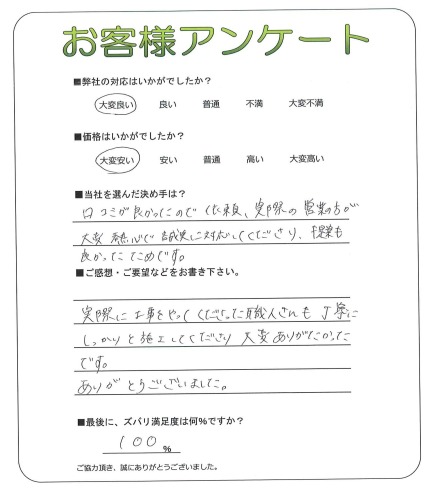 お客様アンケート
■弊社の対応はいかがでしたか？
大変良い 良い 普通 不満 大変不満
■価格はいかがでしたか？
大変安い 安い 普通 高い 大変高い
■当社を選んだ決め手は？
口コミが良かったので依頼、実際の営業の方が
大変熱心で誠実に対応してくださり、提案も
良かったためです。
■ご感想・ご要望などをお書き下さい。
実際に工事をやってくださった職人さんも丁寧に
しっかりと施工してくださり大変ありがたかった
です。
ありがとうございました。
■最後に、ズバリ満足度は何%ですか？
100%
ご協力頂き、誠にありがとうございました。